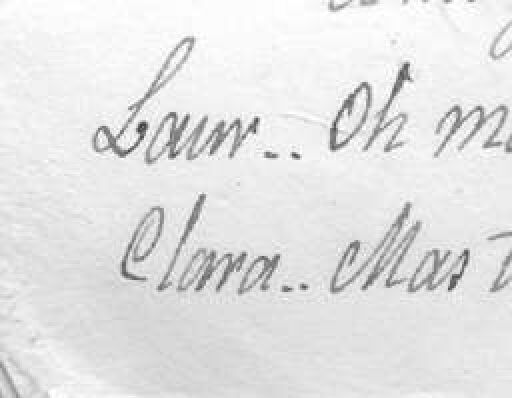 Laur.. Oh m
Clara.. Mas t